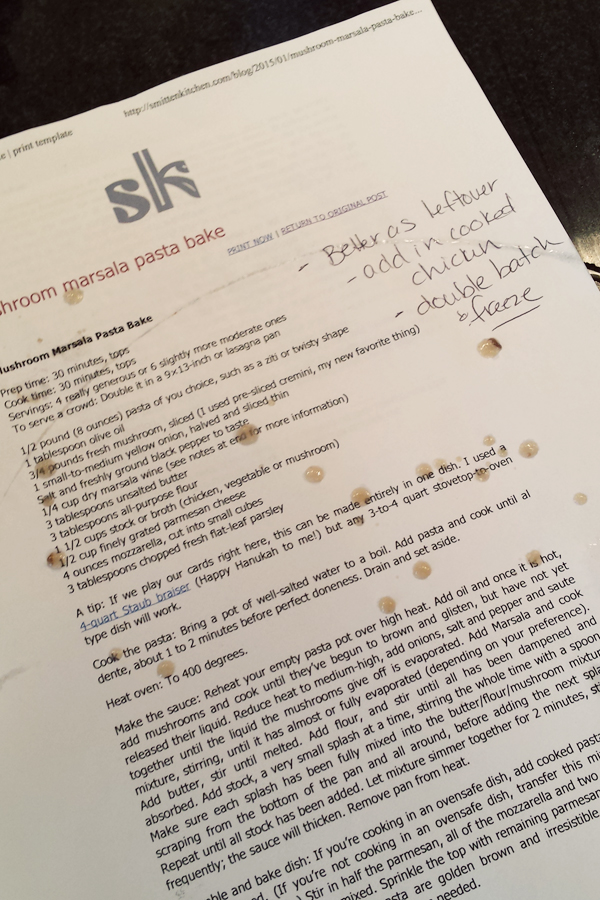 http://smittenkitchen.com/blog/2015/01/mushroom-marsala-pasta-bake...
| print template
sk
PRINT NOW | RETURN TO ORIGINAL POST
hroom marsala pasta bake
- Better as leftover
- add in cooked
chicken
- double batch
& freeze
Mushroom Marsala Pasta Bake
Prep time: 30 minutes, tops
Cook time: 30 minutes, tops
Servings: 4 really generous or 6 slightly more moderate ones
To serve a crowd: Double it in a 9×13-inch or lasagna pan
1/2 pound (8 ounces) pasta of you choice, such as a ziti or twisty shape
1 tablespoon olive oil
3/4 pounds fresh mushroom, sliced (I used pre-sliced cremini, my new favorite thing)
1 small-to-medium yellow onion, halved and sliced thin
Salt and freshly ground black pepper to taste
1/4 cup dry marsala wine (see notes at end for more information)
3 tablespoons unsalted butter
3 tablespoons all-purpose flour
1 1/2 cups stock or broth (chicken, vegetable or mushroom)
1/2 cup finely grated parmesan cheese
4 ounces mozzarella, cut into small cubes
3 tablespoons chopped fresh flat-leaf parsley
A tip: If we play our cards right here, this can be made entirely in one dish. I used a
4-quart Staub braiser (Happy Hanukah to me!) but any 3-to-4 quart stovetop-to-oven
type dish will work.
Cook the pasta: Bring a pot of well-salted water to a boil. Add pasta and cook until al
dente, about 1 to 2 minutes before perfect doneness. Drain and set aside.
Heat oven: To 400 degrees.
Make the sauce: Reheat your empty pasta pot over high heat. Add oil and once it is hot,
add mushrooms and cook until they've begun to brown and glisten, but have not yet
released their liquid. Reduce heat to medium-high, add onions, salt and pepper and saute
together until the liquid the mushrooms give off is evaporated. Add Marsala and cook
mixture, stirring, until it has almost or fully evaporated (depending on your preference).
Add butter, stir until melted. Add flour, and stir until all has been dampened and
absorbed. Add stock, a very small splash at a time, stirring the whole time with a spoon
Make sure each splash has been fully mixed into the butter/flour/mushroom mixtur
scraping from the bottom of the pan and all around, before adding the next spla
Repeat until all stock has been added. Let mixture simmer together for 2 minutes, sti
frequently; the sauce will thicken. Remove pan from heat.
ble and bake dish: If you're cooking in an ovensafe dish, add cooked pasta
(If you're not cooking in an ovensafe dish, transfer this mi
) Stir in half the parmesan, all of the mozzarella and two
mixed. Sprinkle the top with remaining parmesan
pasta are golden brown and irresistible
needed.